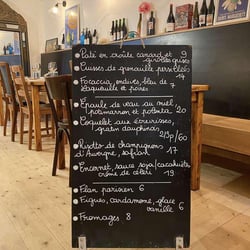 Pâté en croûte canard et 9
girolles grises
Cuisses de grenouille persillées
Focaccia, endives, bleu de 17
Laqueuille et poires 7
Epaule de veau au miel
potimarron et polenta 20
Coquelet aux écrevisses,
gratin dauphinois
2/3p/60
Risotto de champignons
d'Auvergne, safran 17
Encornet sauce soja/cacahuète
crème de céleri 19
Flan parisien 6
Figues, cardamome, glace
vanille 6
Fromages 8